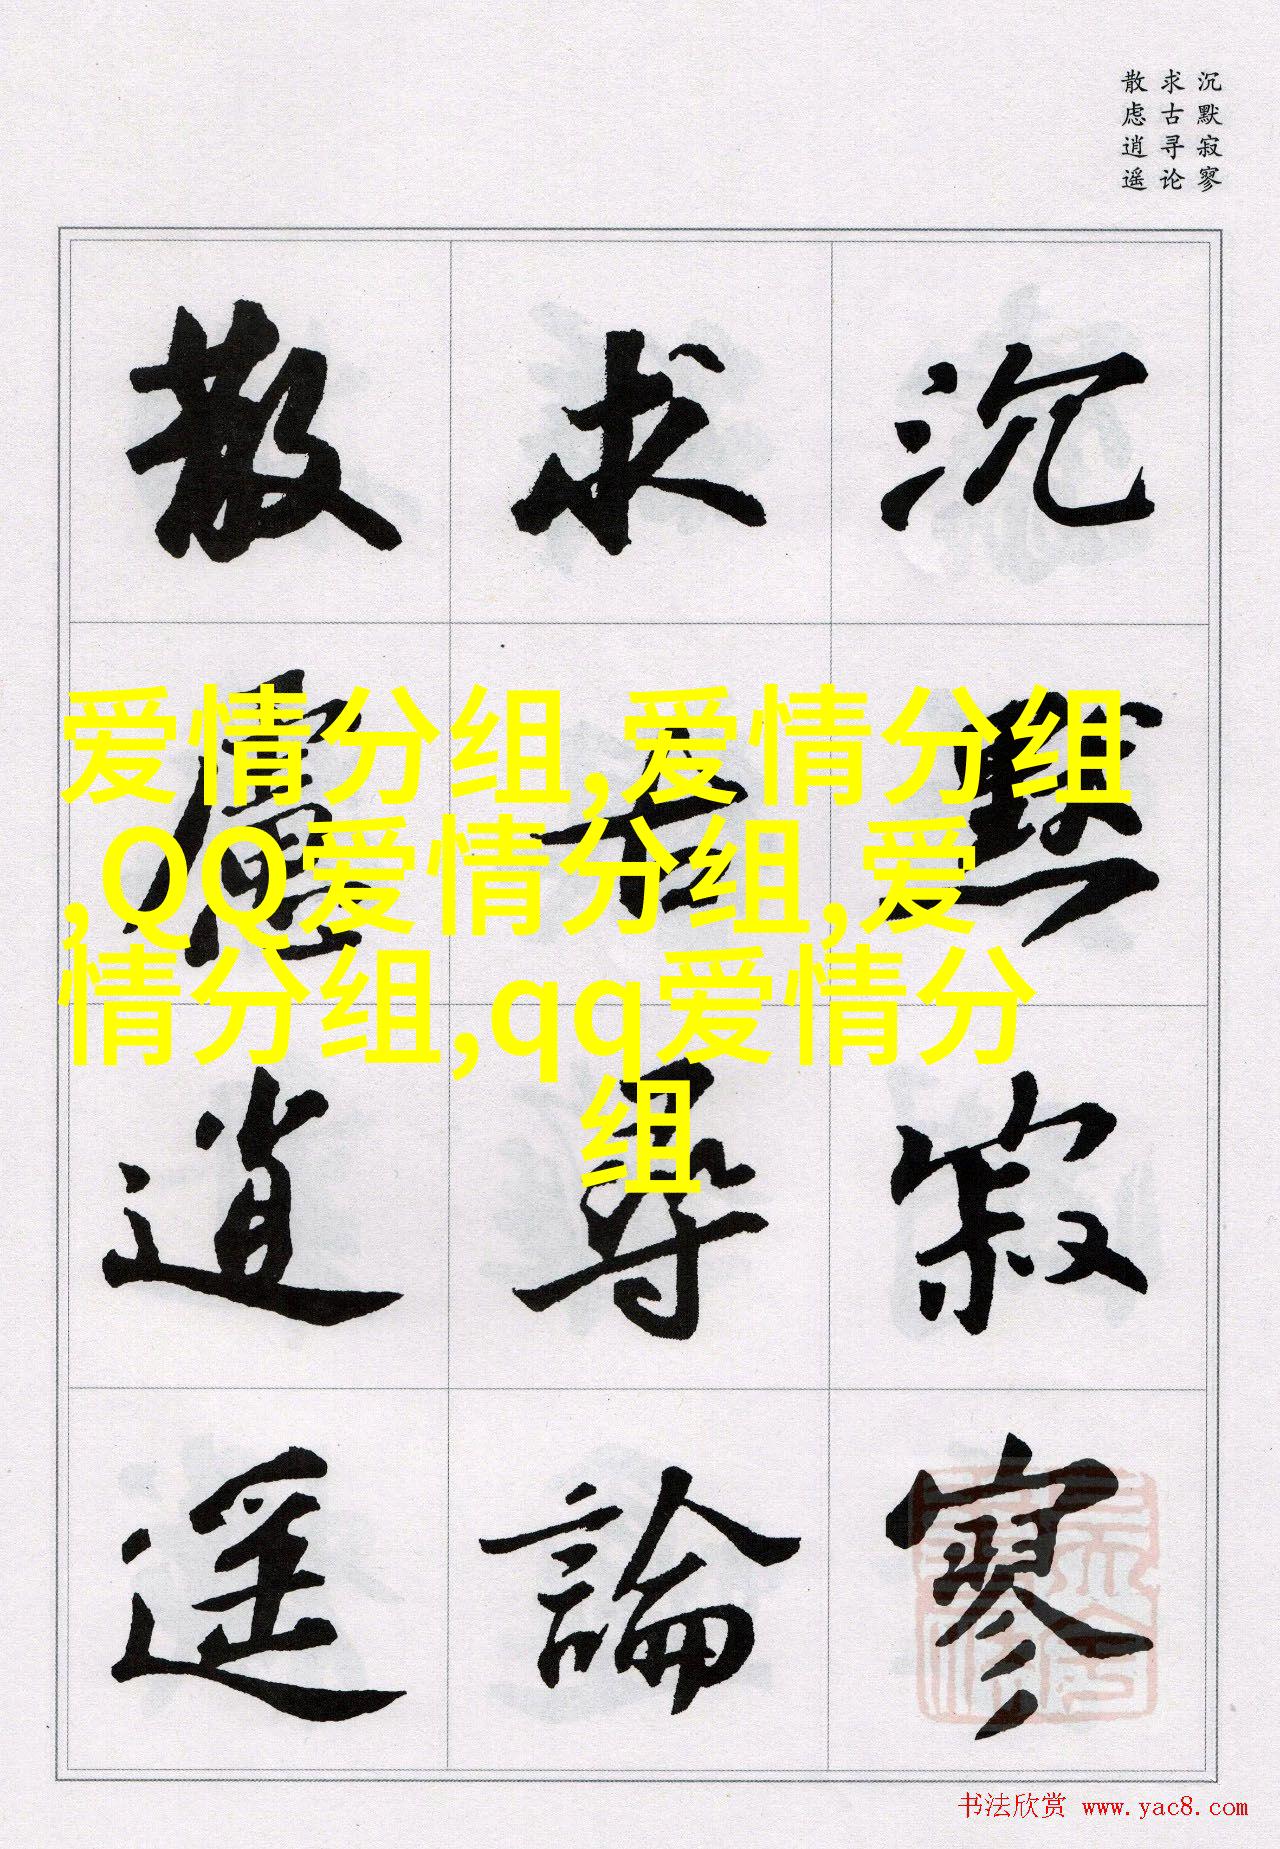 沉默寂寥
求古寻论
散虑逍遥
沉默寂寥
求古尋論
散慮逍遥
爱情分组,爱情分组
,QQ爱情分组,爱
情分组,qq爱情分
组
书法欣赏 www.yac8.com